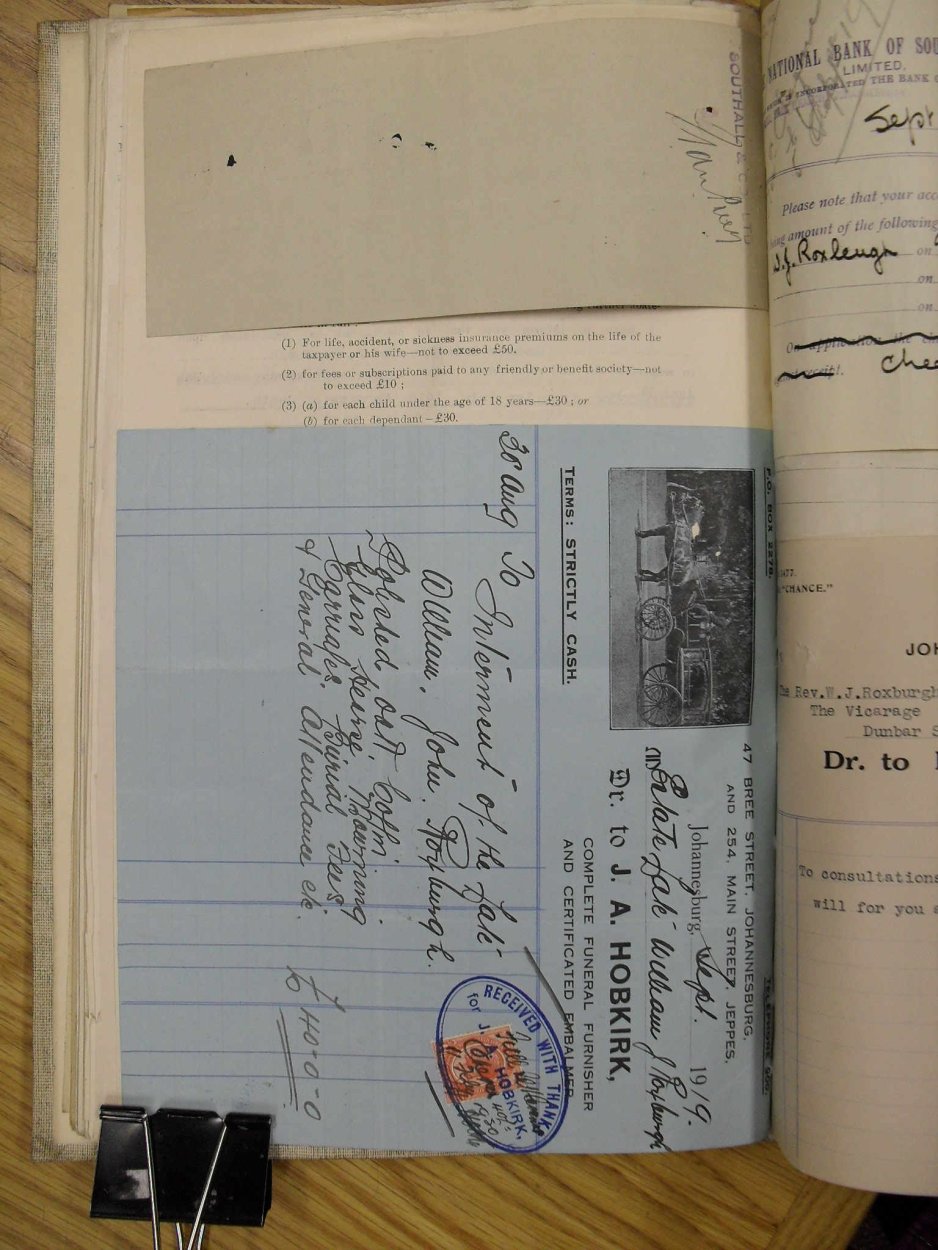 SOUTHALL & C LTD
(1) For life, accident, or sickness insurance premiums on the life of the
taxpayer or his wife—not to exceed £50.
(2) for fees or subscriptions paid to any friendly or benefit society—not
to exceed £10 ;
(3) (a) for each child under the age of 18 years—£30 ; or
(b) for each dependant—£30.
P.O. BOX 2276.
TELEPHONE
47 BREE STREET, JOHANNESBURG,
AND 254, MAIN STREET, JEPPES.
Johannesburg, Sept. 1919.
Estate Late William J Roxburgh
Dr. to J. A. HOBKIRK,
COMPLETE FUNERAL FURNISHER
AND CERTIFICATED EMBALMER
TERMS: STRICTLY CASH.
20 Aug To Interment of the Late
William. John. Roxburgh.
Polished oak Coffin
Glass Hearse, Mourning
Carriages, Burial Fees
& General Attendance etc.
£40-0-0
RECEIVED WITH THANKS
for J. A. HOBKIRK,
NATIONAL BANK OF SOU
LIMITED.
INCORPORATED THE BANK
Sept
Please note that your acc
being amount of the following
W.J. Roxleugh on
on
on
Chee
"CHANCE."
JOH
The Rev.W.J.Roxburgh
The Vicarage
Dunbar S
Dr. to
To consultations
will for you